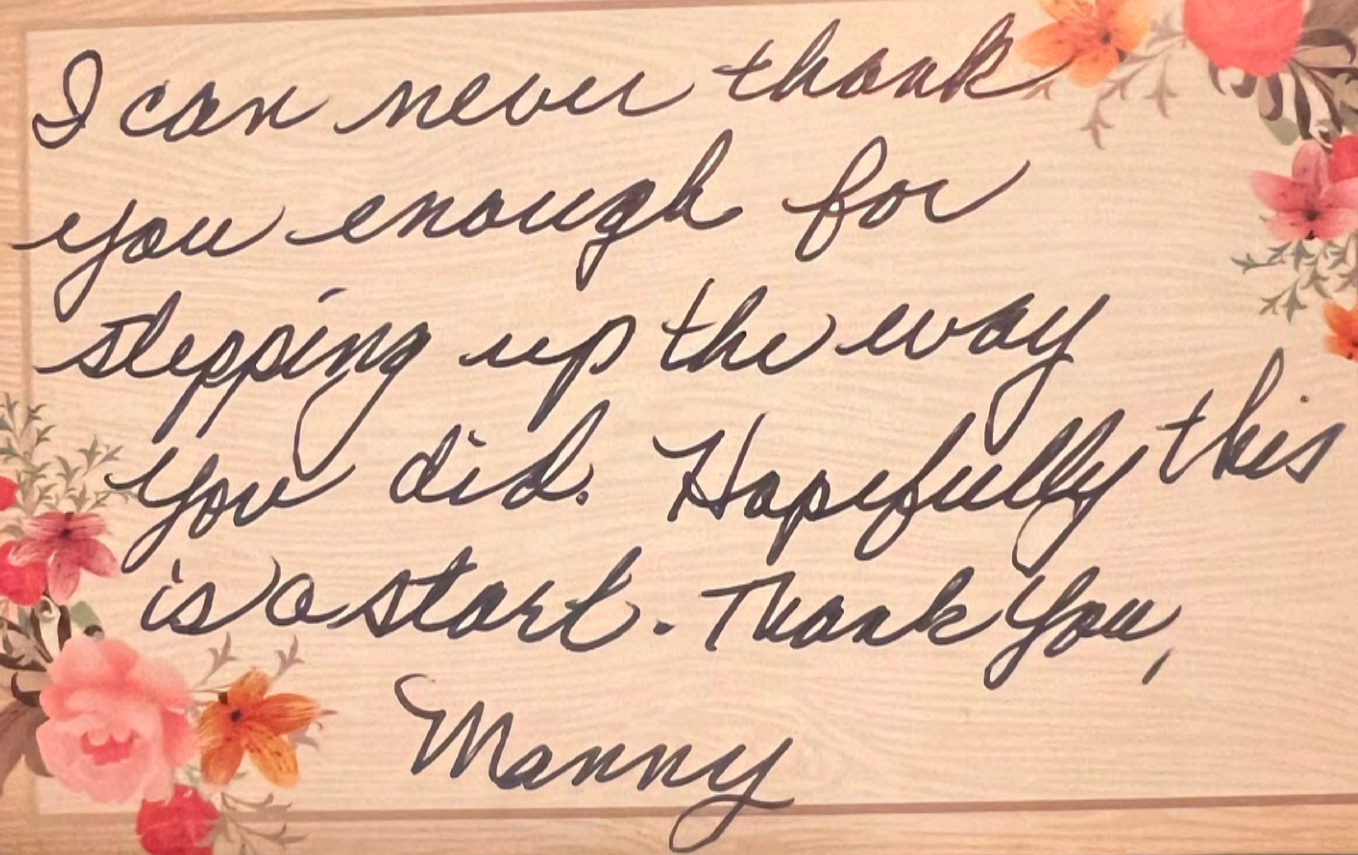 I can never thank
you enough for
stepping up the way
you did. Hopefully this
is a start. Thank You,
Manny